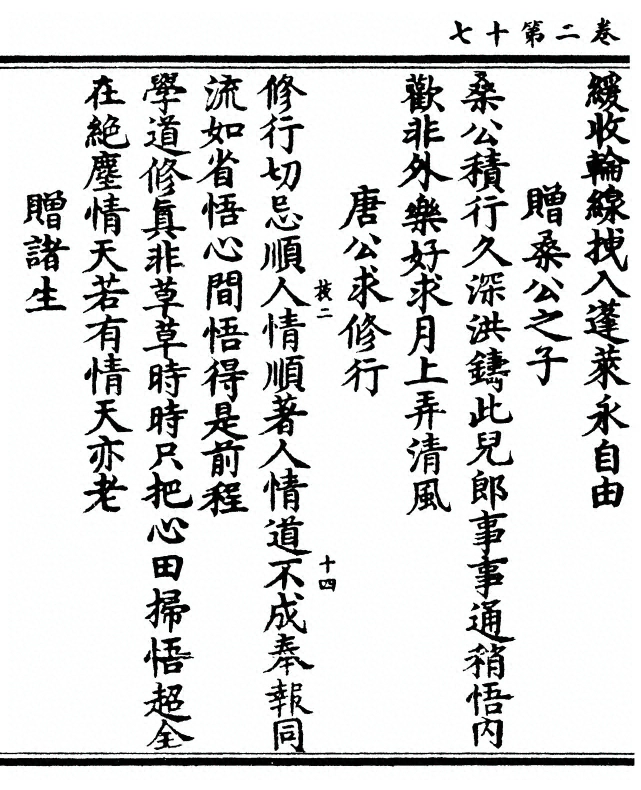 卷二第十七
緩收輪線拽入蓬萊永自由
贈桑公之子
桑公積行久深洪鑄此兒郎事事通稍悟內
歡非外樂好求月上弄清風
唐公求修行
修行切忌順人情順著人情道不成奉報同
流如省悟心間悟得是前程
學道修真非草草時時只把心田掃悟超全
在絶塵情天若有情天亦老
贈諸生
十四